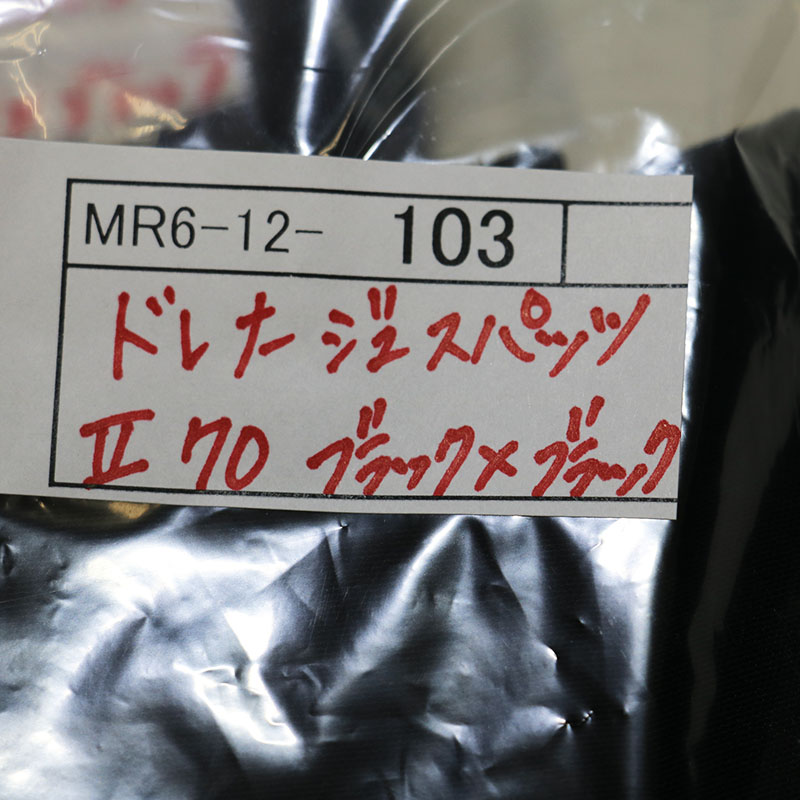 MR6-12- 103
ドレナージュスパッツ
Ⅱ 70 ブラック×ブラック